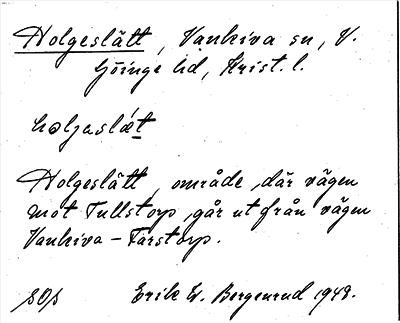 Holgeslätt, Vankiva sn, V.
Göinge hd, Krist. l.
hɷljaslǽt
Holgeslätt, område, där vägen
mot Tullstorp går ut från vägen
Vankiva - Farstorp.
SOS Erik W. Bergenrud 1948.